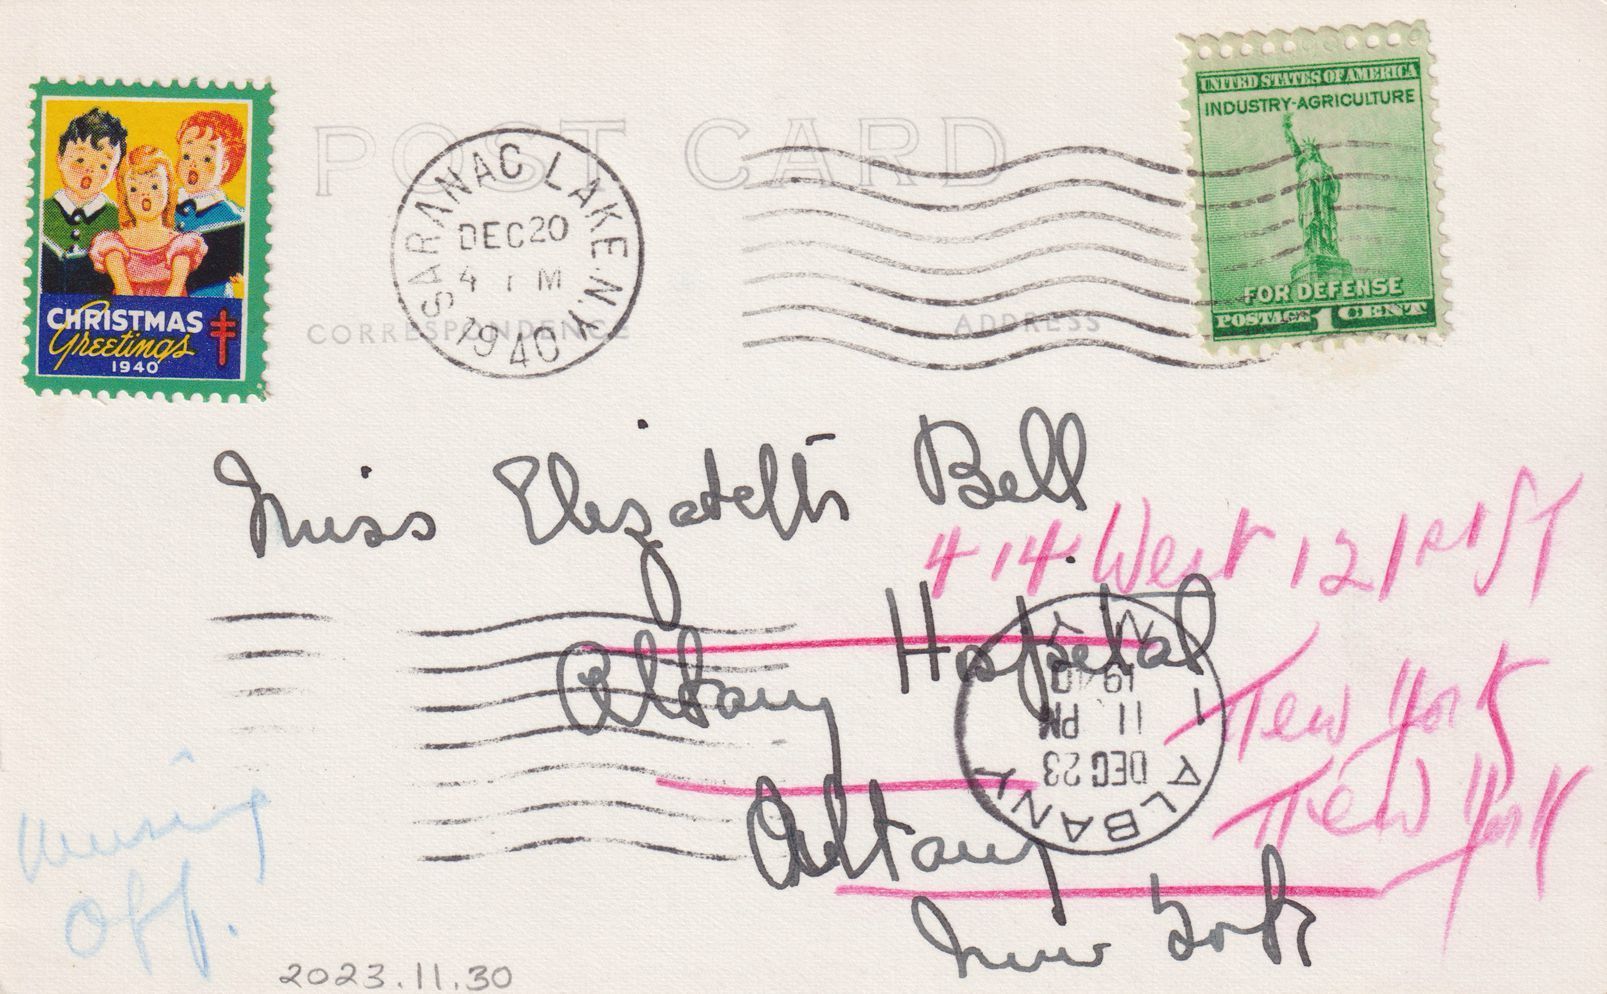 POST CARD
CORRESPONDENCE
ADDRESS
CHRISTMAS
Greetings
1940
SARANAC LAKE N.Y.
DEC 20
4 PM
1940
UNITED STATES OF AMERICA
INDUSTRY-AGRICULTURE
FOR DEFENSE
POSTAGE 1 CENT
Miss Elizabeth Bell
Albany Hospital
Albany
New York
414 West 121st ST
New York
New York
ALBANY N.Y.
1
DEC 23
11 PM
1940
Nursing
Off.
2023.11.30